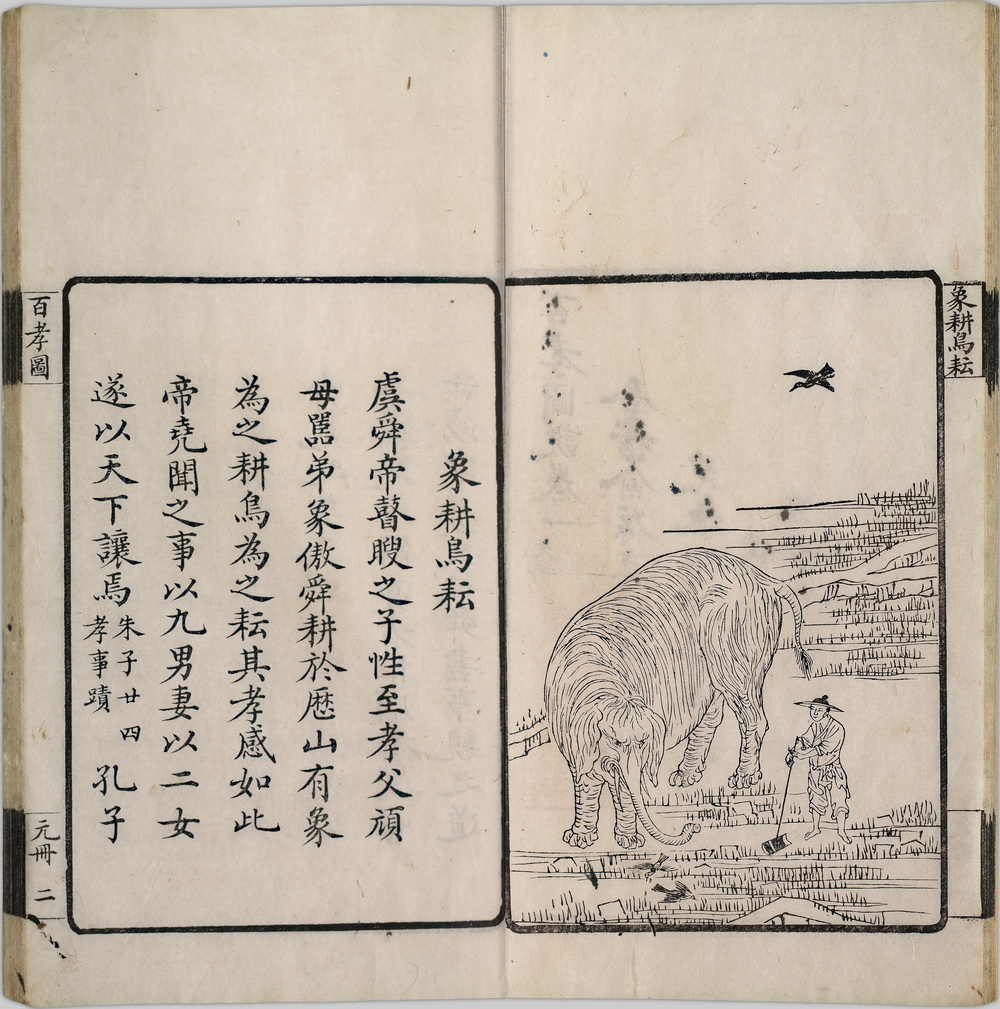 象耕鳥耘
象耕鳥耘
虞舜帝瞽瞍之子性至孝父頑
母嚚弟象傲舜耕於歷山有象
為之耕鳥為之耘其孝感如此
帝堯聞之事以九男妻以二女
遂以天下讓焉朱子廿四
孝事蹟
孔子
百孝圖
元冊
二